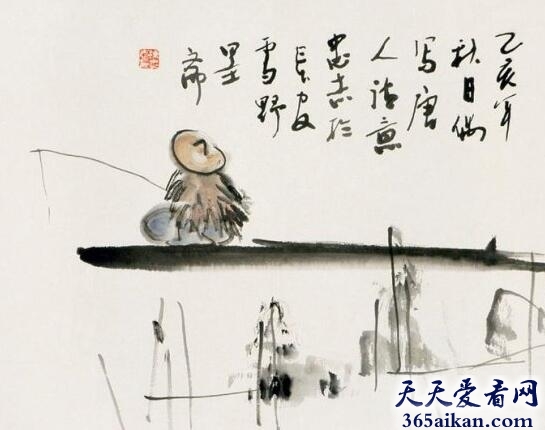 乙亥年
秋日偶
写唐
人诗意
忠志於
长安
雪野
墨
斋
天天爱看网
365aikan.com